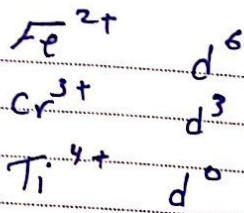 Fe²⁺ d⁶
Cr³⁺ d³
Ti⁴⁺ d⁰